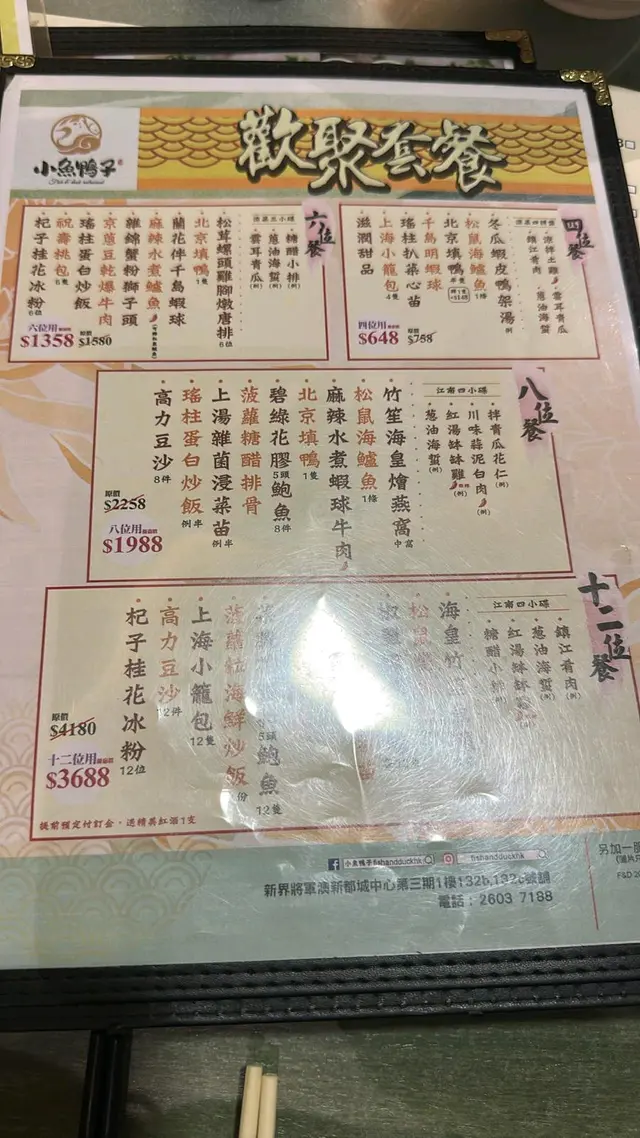 小魚鴨子
歡聚套餐
六位餐
糖醋小排(例)
葱油海蜇(例)
雲耳青瓜(例)
松茸螺頭雞腳燉唐排6位
北京填鴨1隻
蘭花伴千島蝦球
麻辣水煮鱸魚
雜錦蟹粉獅子頭
京蔥豆乾爆牛肉
瑤柱蛋白炒飯
祝壽桃包6隻
杞子桂花冰粉6位
六位用
$1358
原價
$1580
四位餐
涼拌土雞
雲耳青瓜
鎮江肴肉
葱油海蜇
冬瓜蝦皮鴨架湯例
松鼠海鱸魚1條
北京填鴨半隻
千島明蝦球
瑤柱扒菜心苗
上海小籠包4隻
滋潤甜品
四位用
$648
原價
$758
八位餐
江南四小碟
拌青瓜花仁(例)
川味蒜泥白肉(例)
紅湯缽缽雞(例)
葱油海蜇(例)
竹笙海皇燴燕窩中窩
松鼠海鱸魚1條
麻辣水煮蝦球牛肉
北京填鴨1隻
碧綠花膠5頭鮑魚8件
菠蘿糖醋排骨
上湯雜菌浸菜苗例半
瑤柱蛋白炒飯例半
高力豆沙8件
原價
$2258
八位用
$1988
十二位餐
江南四小碟
鎮江肴肉(例)
葱油海蜇(例)
紅湯缽缽
糖醋小排(例)
海皇竹
松鼠
5頭鮑魚12隻
海鮮炒飯份
上海小籠包12隻
高力豆沙12件
杞子桂花冰粉12位
原價
$4180
十二位用
$3688
提前預定付訂金，送精美紅酒1支
小魚鴨子fishandduckhk
fishandduckhk
新界將軍澳新都城中心第三期1樓132b,132c號舖
電話：2603 7188
另加一服
F&D 20